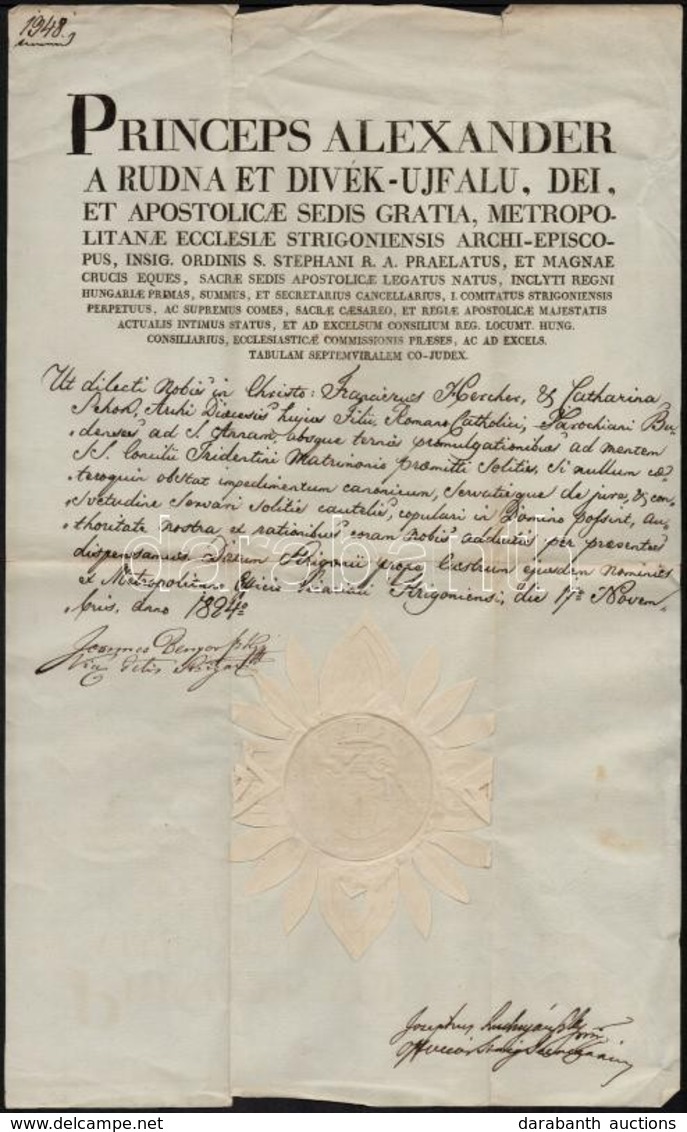 1948.
PRINCEPS ALEXANDER
A RUDNA ET DIVÉK-UJFALU, DEI,
ET APOSTOLICÆ SEDIS GRATIA, METROPO-
LITANÆ ECCLESIÆ STRIGONIENSIS ARCHI-EPISCO-
PUS, INSIG. ORDINIS S. STEPHANI R. A. PRAELATUS, ET MAGNAE
CRUCIS EQUES, SACRÆ SEDIS APOSTOLICÆ LEGATUS NATUS, INCLYTI REGNI
HUNGARIÆ PRIMAS, SUMMUS, ET SECRETARIUS CANCELLARIUS, I. COMITATUS STRIGONIENSIS
PERPETUUS, AC SUPREMUS COMES, SACRÆ CÆSAREO, ET REGIÆ APOSTOLICÆ MAJESTATIS
ACTUALIS INTIMUS STATUS, ET AD EXCELSUM CONSILIUM REG. LOCUMT. HUNG.
CONSILIARIUS, ECCLESIASTICÆ COMMISSIONIS PRÆSES, AC AD EXCELS.
TABULAM SEPTEMVIRALEM CO-JUDEX.
Ut dilecti Nobis in Christo: Franciscus Hercher, & Catharina
Archi Dioecesis hujus Filii, Romano Catholici, Parochiani Bu-
denses ad S. Annam, absque ternis promulgationibus ad mentem
SS. Concilii Tridentini Matrimonio præmitti solitis, si nullum cæ-
teroquin obstat impedimentum canonicum, servatisque de jure, & con-
svetudine servari solitis cautelis, copulari in Domino possint, au-
thoritate nostra ex rationibus coram nobis adductis per præsentes
dispensamus. Datum Strigonii prope Castrum ejusdem nominis
ex Metropolitanæ Strigoniensi, die 17a Novem-
bris, anno 1824o
Joannes
Josephus
databanth
darabanth auctions